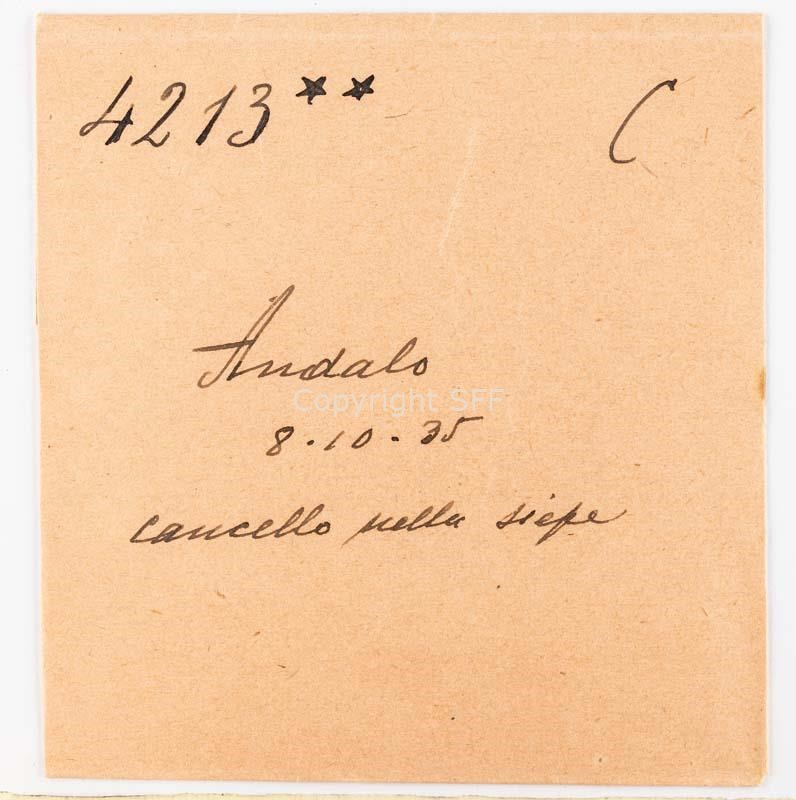 4213** C
Andalo
Copyright SFF
8.10.35
cancello nella siepe